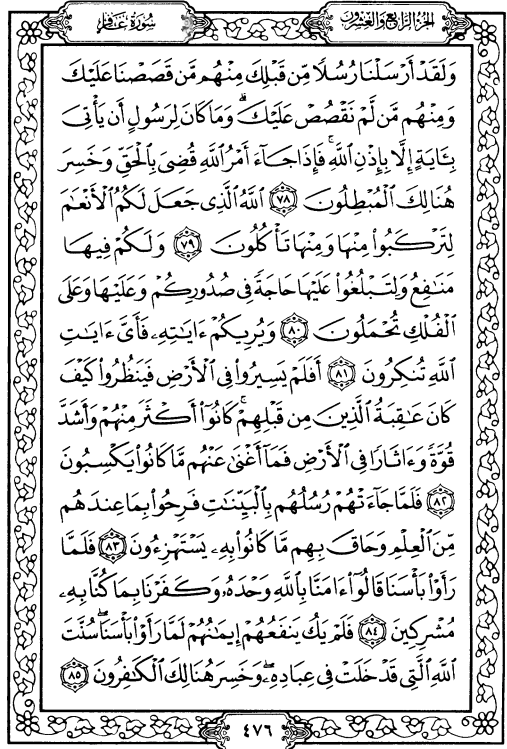 سُورَةُ غَافِرٍ
الجُزْءُ الرَّابِعُ وَالعِشْرُونَ
وَلَقَدْ أَرْسَلْنَا رُسُلًا مِّن قَبْلِكَ مِنْهُم مَّن قَصَصْنَا عَلَيْكَ
وَمِنْهُم مَّن لَّمْ نَقْصُصْ عَلَيْكَ ۗ وَمَا كَانَ لِرَسُولٍ أَن يَأْتِىَ
بِـَٔايَةٍ إِلَّا بِإِذْنِ ٱللَّهِ ۚ فَإِذَا جَآءَ أَمْرُ ٱللَّهِ قُضِىَ بِٱلْحَقِّ وَخَسِرَ
هُنَالِكَ ٱلْمُبْطِلُونَ ٧٨ ٱللَّهُ ٱلَّذِى جَعَلَ لَكُمُ ٱلْأَنْعَٰمَ
لِتَرْكَبُوا۟ مِنْهَا وَمِنْهَا تَأْكُلُونَ ٧٩ وَلَكُمْ فِيهَا
مَنَٰفِعُ وَلِتَبْلُغُوا۟ عَلَيْهَا حَاجَةً فِى صُدُورِكُمْ وَعَلَيْهَا وَعَلَى
ٱلْفُلْكِ تُحْمَلُونَ ٨٠ وَيُرِيكُمْ ءَايَٰتِهِۦ فَأَىَّ ءَايَٰتِ
ٱللَّهِ تُنكِرُونَ ٨١ أَفَلَمْ يَسِيرُوا۟ فِى ٱلْأَرْضِ فَيَنظُرُوا۟ كَيْفَ
كَانَ عَٰقِبَةُ ٱلَّذِينَ مِن قَبْلِهِمْ ۚ كَانُوٓا۟ أَكْثَرَ مِنْهُمْ وَأَشَدَّ
قُوَّةً وَءَاثَارًا فِى ٱلْأَرْضِ فَمَآ أَغْنَىٰ عَنْهُم مَّا كَانُوا۟ يَكْسِبُونَ
٨٢ فَلَمَّا جَآءَتْهُمْ رُسُلُهُم بِٱلْبَيِّنَٰتِ فَرِحُوا۟ بِمَا عِندَهُم
مِّنَ ٱلْعِلْمِ وَحَاقَ بِهِم مَّا كَانُوا۟ بِهِۦ يَسْتَهْزِءُونَ ٨٣ فَلَمَّا
رَأَوْا۟ بَأْسَنَا قَالُوٓا۟ ءَامَنَّا بِٱللَّهِ وَحْدَهُۥ وَكَفَرْنَا بِمَا كُنَّا بِهِۦ
مُشْرِكِينَ ٨٤ فَلَمْ يَكُ يَنفَعُهُمْ إِيمَٰنُهُمْ لَمَّا رَأَوْا۟ بَأْسَنَا ۖ سُنَّتَ
ٱللَّهِ ٱلَّتِى قَدْ خَلَتْ فِى عِبَادِهِۦ ۖ وَخَسِرَ هُنَالِكَ ٱلْكَٰفِرُونَ ٨٥
٤٧٦